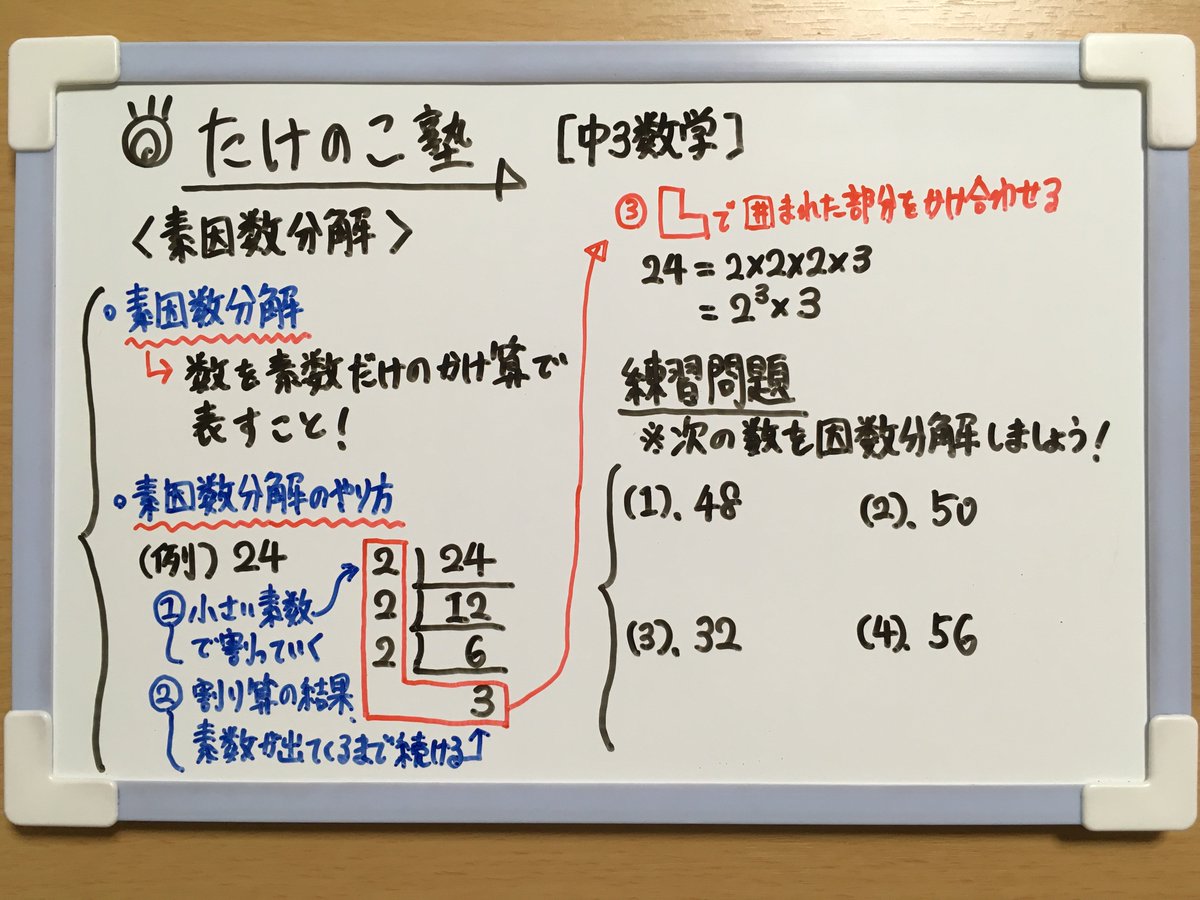 たけのこ塾
[中3数学]
〈素因数分解〉
。素因数分解
→数を素数だけのかけ算で
表すこと!
。素因数分解のやり方
(例) 24
①小さい素数
で割っていく
②割り算の結果、
素数が出てくるまで続ける↑
2 24
2 12
2 6
3
③ で囲まれた部分をかけ合わせる
24=2×2×2×3
=2³×3
練習問題
※次の数を因数分解しましょう!
(1). 48 (2). 50
(3). 32 (4). 56